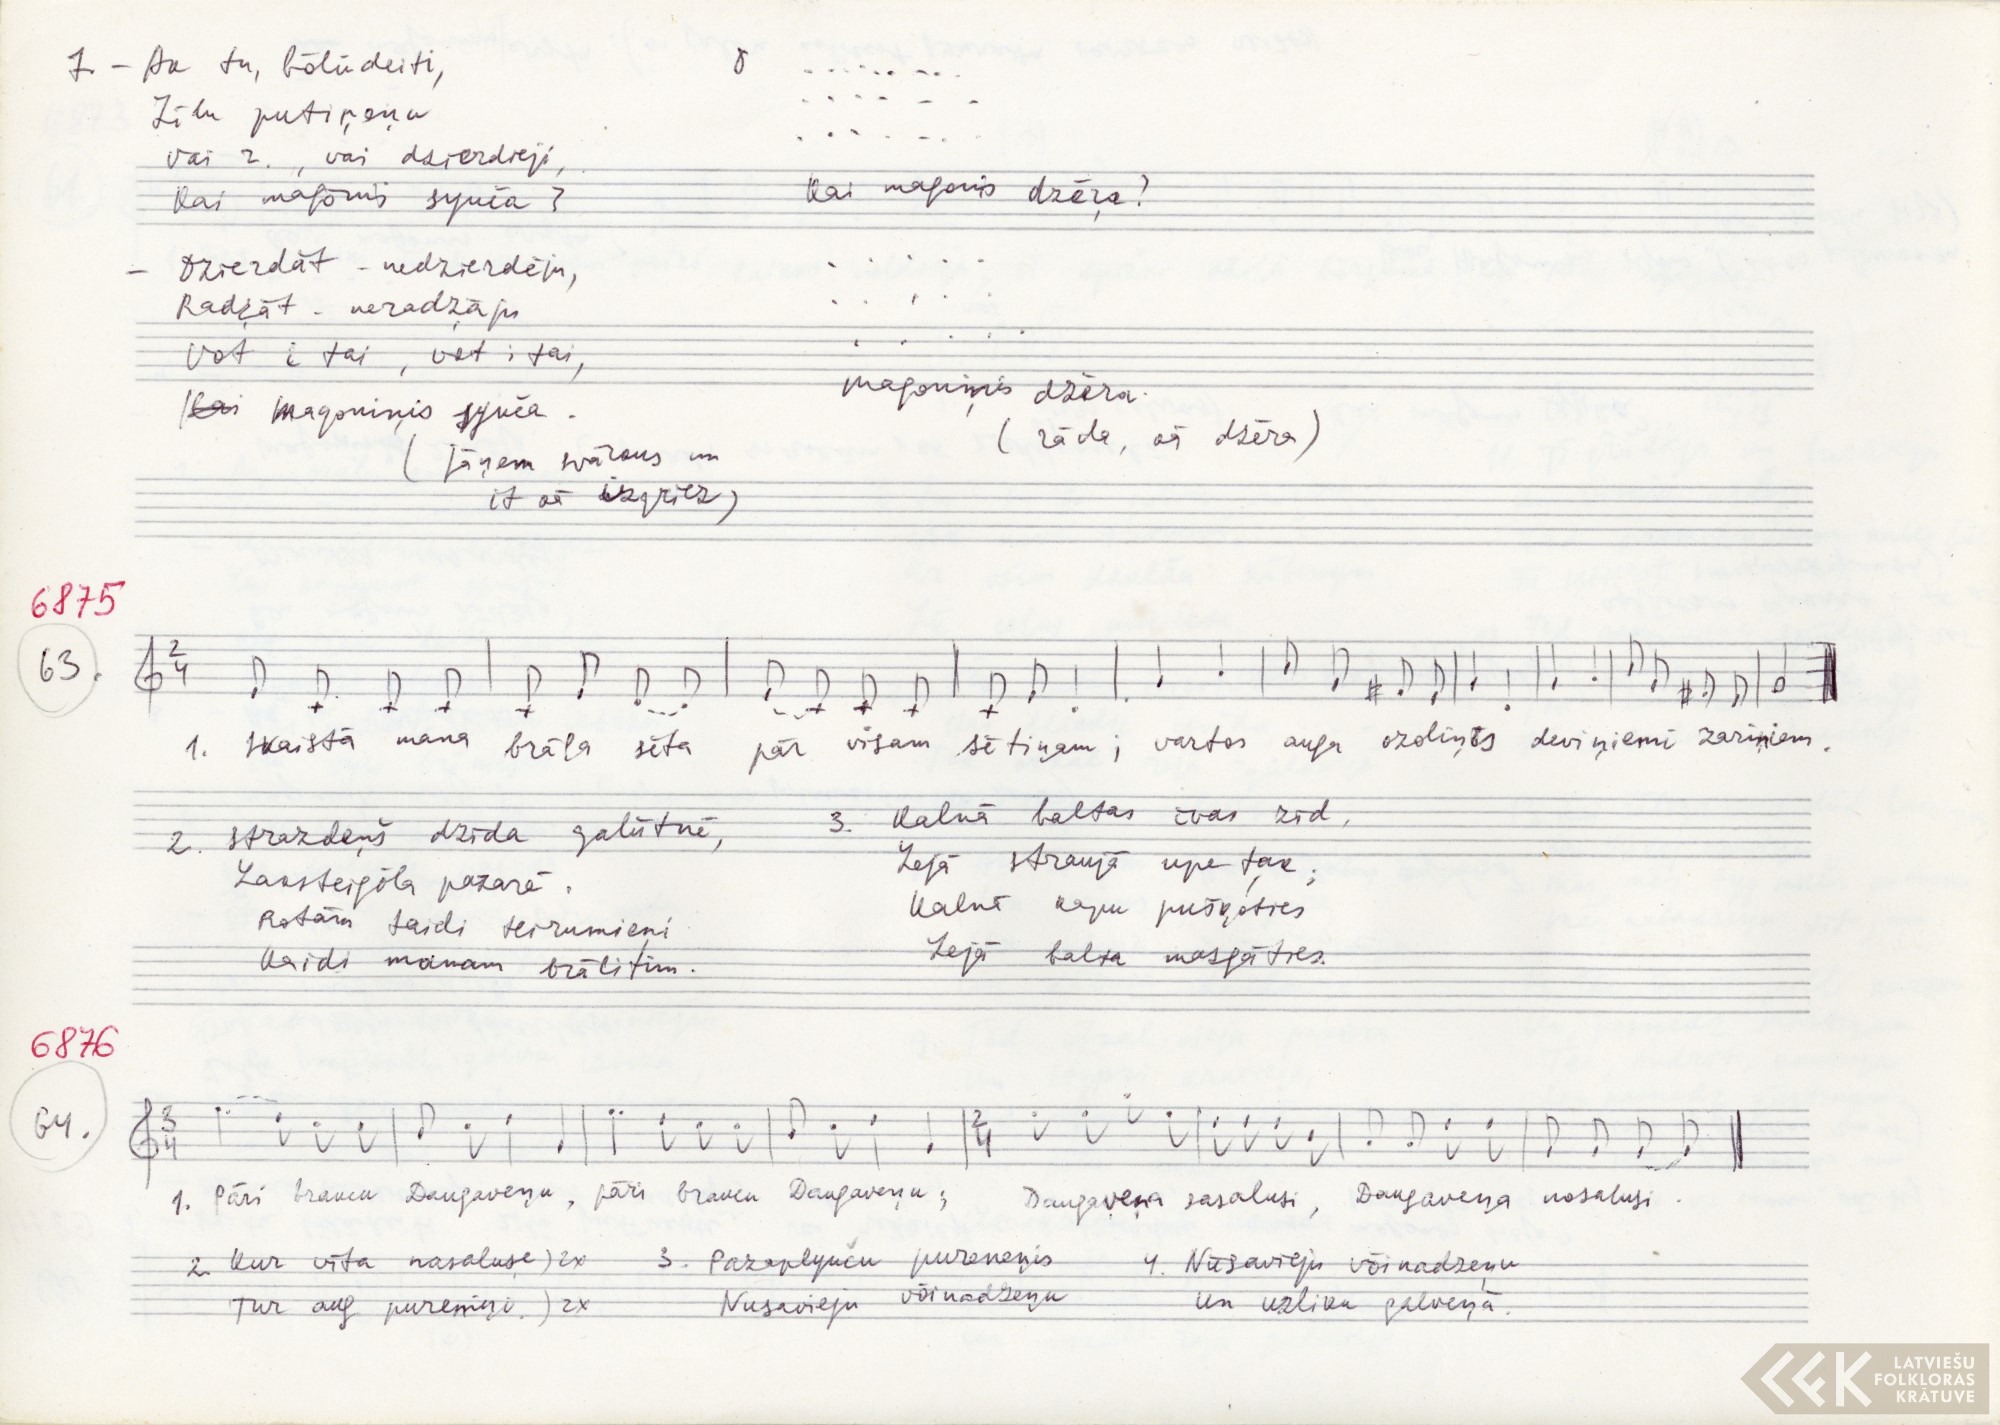 7. – Ak tu, bolūdeiti,
Zīlu putiņeņu
Vai z., vai dzierdieji,
Kai magōnis synča?
– Dzierdāt – nedzierdēju,
Radžāt – neradžāju
Vot i tai, vot i tai,
Kai Magoniņis synča.
(jāņem svārcus un
it kā izgriež)
8
Kai magonis dzēra?
Magoniņis dzēra.
(rāda, kā dzēra)
6875
63.
2/4
1. Skaistā mana brāļa sēta pār visam sētiņam; vartos auga ozoliņš deviņiemi zariņiem.
2. Strazdeņš dzīda galūtnē,
Laksteigōla pazarē.
Rotām taidi teirumieņi
Kaidi manam brālītim.
3. Kalnā baltas īvas zīd,
Lejā straujā upe ţak;
Kalnā kapu puškoties
Lejā balta mazgāties.
6876
64.
3/4 2/4
1. Pāri braucu Daugaveņu, pāri braucu Daugaveņu; Daugaveņa sasaluși, Daugaveņa nosaluși.
2. Kur vīta nasaluse) 2x
Tur aug puremiņi.) 2x
3. Pazaplyuču pureneņis
Nusavieju vōinadzeņu
4. Nūsavieju vōinadzeņu
Un uzliku galveņā.
LATVIEŠU
FOLKLORAS
KRĀTUVE